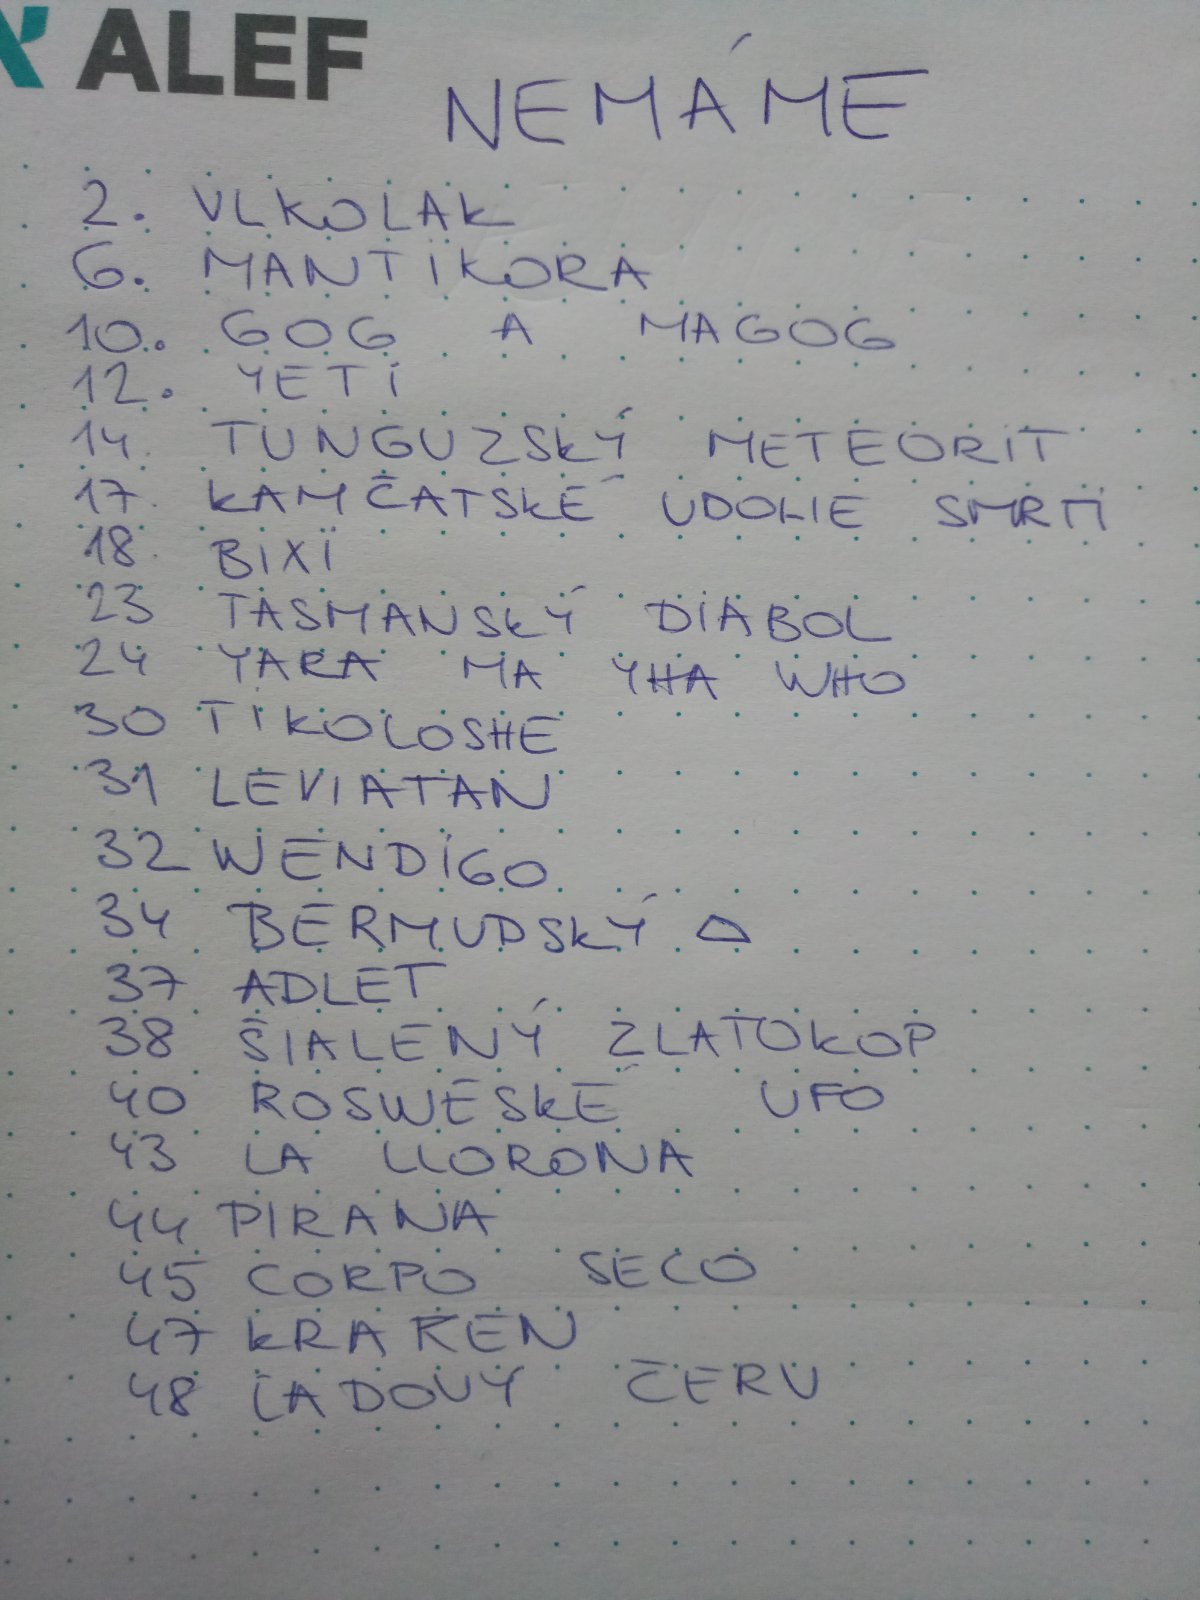 ALEF
NEMÁME
2. VLKOLAK
6. MANTIKORA
10. GOG A MAGOG
12. YETI
14. TUNGUZSKÝ METEORIT
17. KAMČATSKÉ UDOLIE SMRTI
18. BIXI
23 TASMANSKÝ DIABOL
24 YARA MA YHA WHO
30 TIKOLOSHE
31 LEVIATAN
32 WENDIGO
34 BERMUDSKÝ △
37 ADLET
38 ŠIALENÝ ZLATOKOP
40 ROSWESKÉ UFO
43 LA LLORONA
44 PIRANA
45 CORPO SECO
47 KRAKEN
48 ĽADOVÝ ČERV